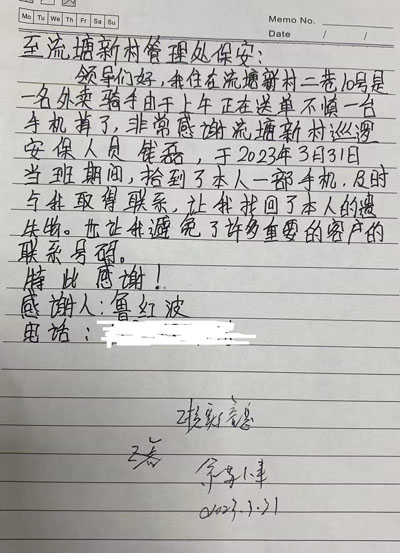 Mo Tu We Th Fr Sa Su
Memo No.
Date / /
至流塘新村管理处保安:
领导们好,我住在流塘新村二巷10号是
一名外卖骑手由于上午正在送单不慎一台
手机掉了,非常感谢流塘新村巡逻
安保人员 钱磊,于2023年3月31日
当班期间,拾到了本人一部手机,及时
与我取得联系,让我找回了本人的遗
失物。也让我避免了许多重要的客户的
联系号码。
特此感谢!
感谢人:鲁红波
电话:
已核实信息
已看
2023.3.31